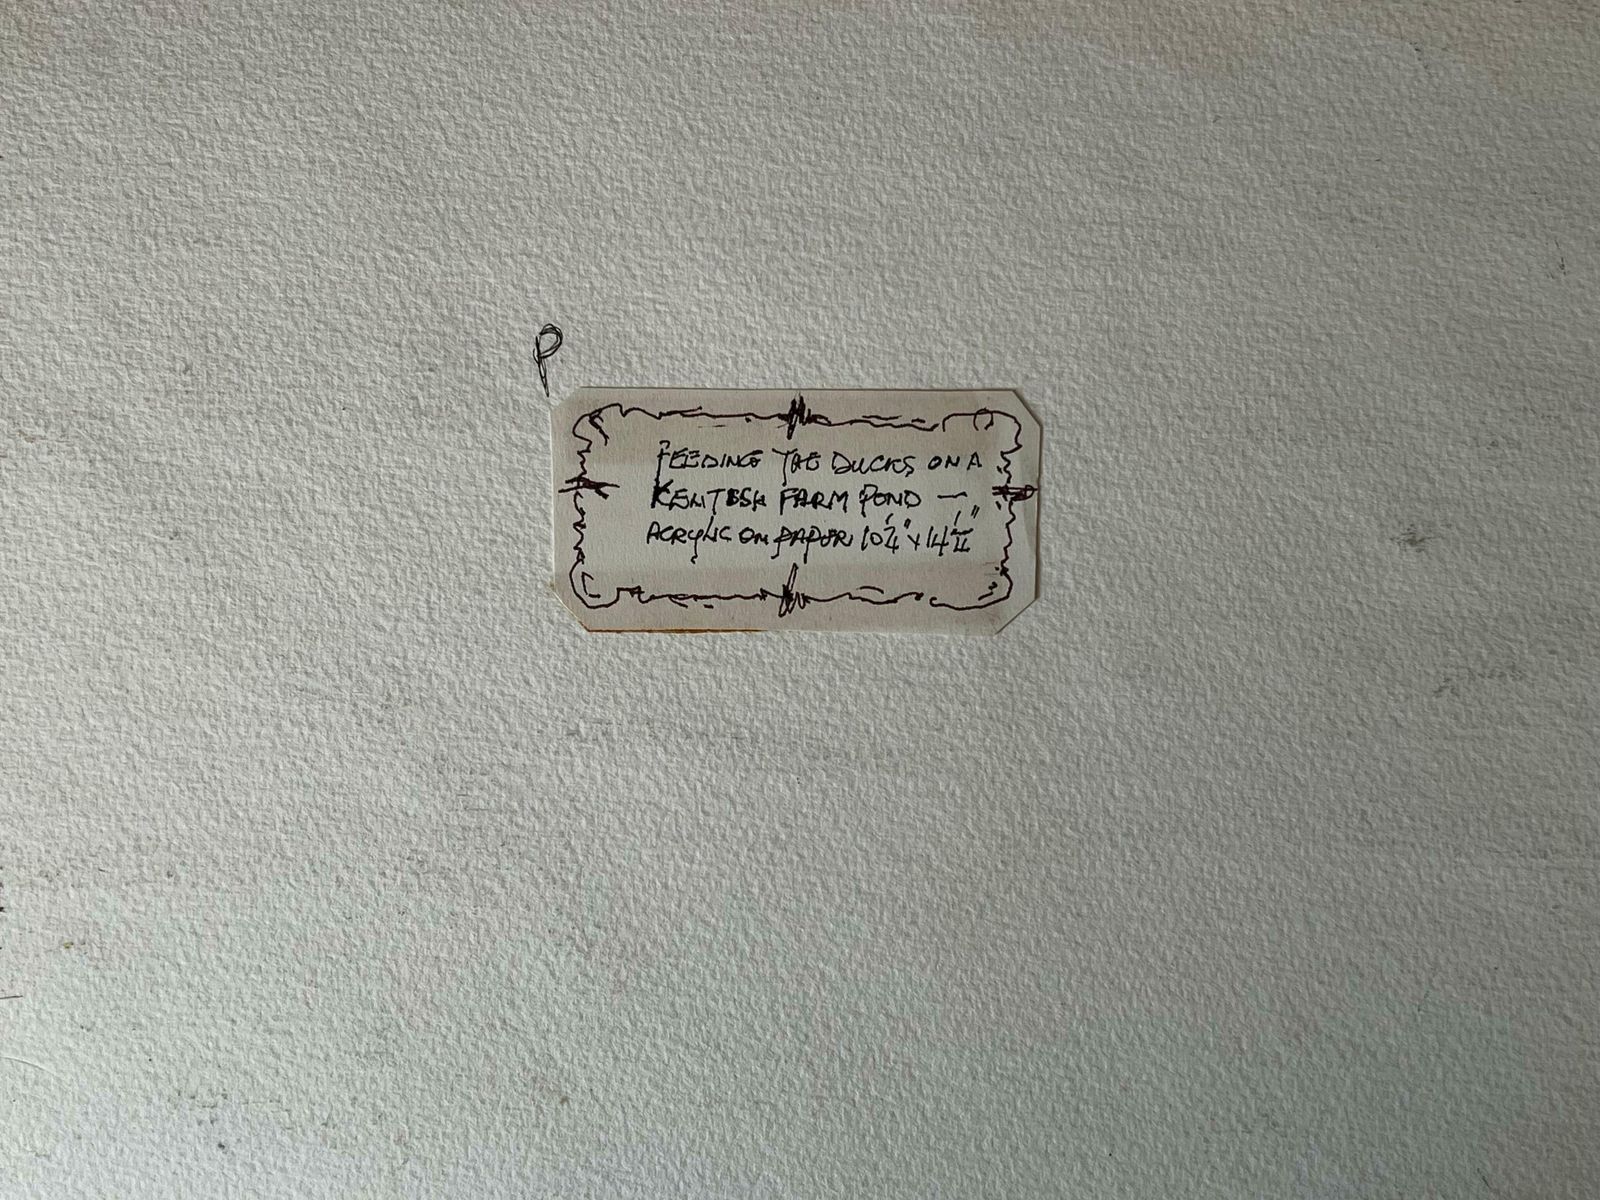 P
FEEDING THE DUCKS ON A
KENTISH FARM POND —
ACRYLIC ON PAPER 10¼" x 14¼"